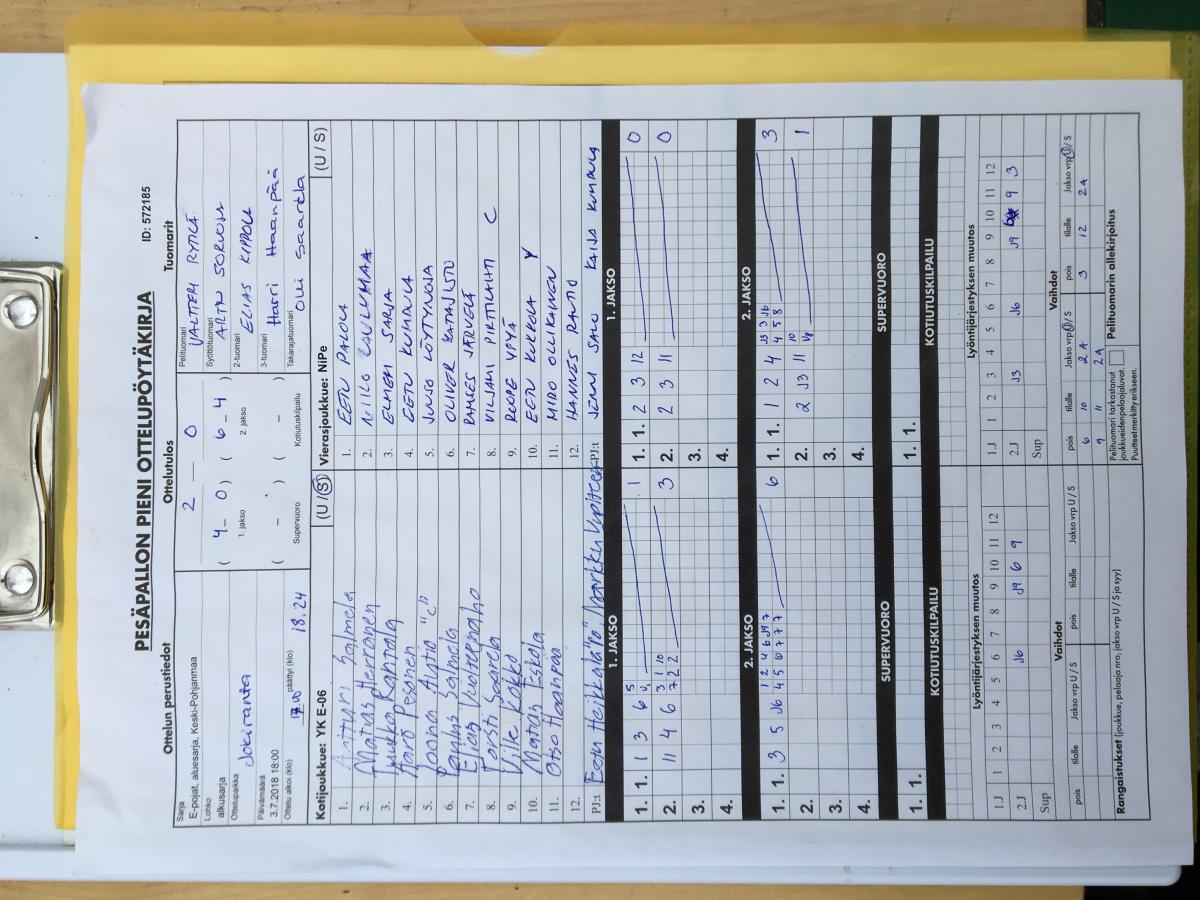 PESÄPALLON PIENI OTTELUPÖYTÄKIRJA
ID: 572185
Ottelun perustiedot
Ottelutulos
Tuomarit
Sarja
E-pojat, aluesarja, Keski-Pohjanmaa
Lohko
alkusarja
Ottelupaikka
Jokiranta
Päivämäärä
3.7.2018 18:00
Ottelu alkoi (klo)
päättyi (klo) 18.24
2 — 0
( 4 - 0 ) ( 6 - 4 )
1. jakso 2. jakso
( - ) ( - )
Supervuoro Kotiutuskilpailu
Pelituomari
VALTTERI RYTILÄ
Syöttötuomari
2-tuomari
ELIAS KIPPOLA
3-tuomari
Harri Haanpää
Takarajatuomari
Olli Saarela
Kotijoukkue: YK E-06 (U / S)
1. Salmela
2. Matias Herranen
3. Rantala
4. Aaro Pesonen
5. Autio "C"
6. Salmela
7. Elias Vuoteenaho
8. Saarela
9. Ville Kokko
10. Matias Eskola
11. Otso Haanpää
12.
PJ:t Eetu Heikkilä
Vierasjoukkue: NiPe (U / S)
1. EETU PALOLA
2. NIILO
3. ELMERI SARJA
4. EETU KUMPULA
5. JUUSO LÖYTYNOJA
6. OLIVER KATAJISTO
7. RAMSES JÄRVELÄ
8. VILJAMI PIRTTILAHTI C
9. ROOPE YPYÄ
10. EETU KUKKOLA Y
11. MIRO OLLIKAINEN
12. HANNES RAUTIO
PJ:t JENNI SALO KAISA KUMPULA
1. JAKSO
1. 1. 1 3 6 1
2. 11 4 6 3
3.
4.
1. JAKSO
1. 1. 2 3 12 0
2. 2 3 11 0
3.
4.
2. JAKSO
1. 1. 3 5 J6 4 5 6 7 7 7 6
2.
3.
4.
2. JAKSO
1. 1. 1 2 4 3
2. 2 J3 11 1
3.
4.
SUPERVUORO
1. 1.
SUPERVUORO
1. 1.
KOTIUTUSKILPAILU
KOTIUTUSKILPAILU
Lyöntijärjestyksen muutos
1.J 1 2 3 4 5 6 7 8 9 10 11 12
2.J J6 J9 6 9
Sup
Lyöntijärjestyksen muutos
1.J 1 2 3 4 5 6 7 8 9 10 11 12
2.J J3 J6 J9 9 3
Sup
Vaihdot
pois tilalle Jakso vrp U / S pois tilalle Jakso vrp U / S
Vaihdot
pois tilalle Jakso vrp U / S pois tilalle Jakso vrp U / S
6 10 2A 3 12 2A
9 11 2A
Rangaistukset (joukkue, pelaaja nro, jakso vrp U / S ja syy)
Pelituomari tarkastanut
joukkueiden pelaajaluvat.
Puutteet merkitty erikseen.
Pelituomarin allekirjoitus